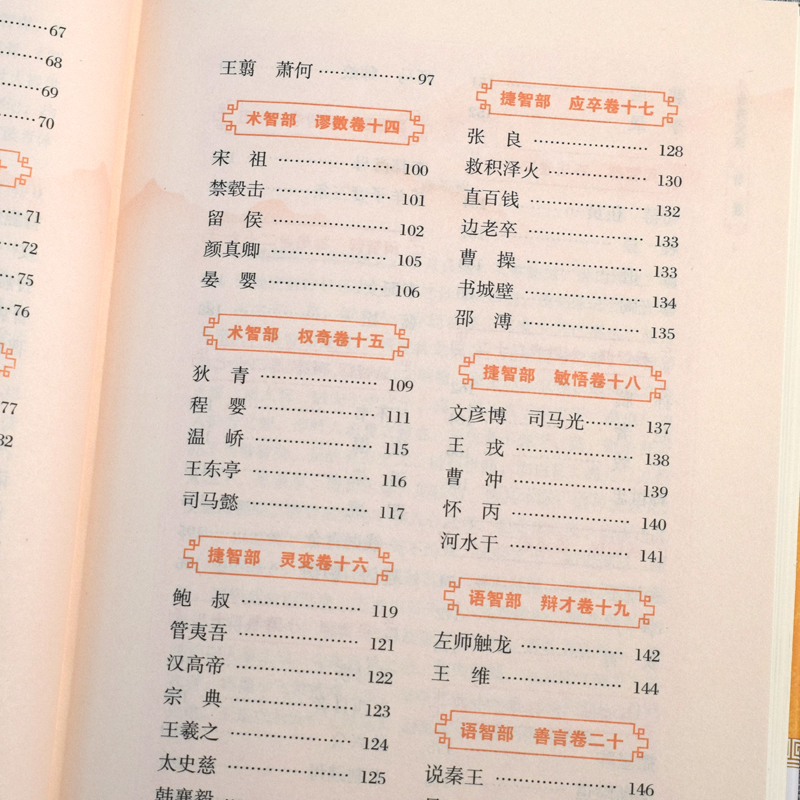 67
68
69
70
71
72
75
76
77
王翦 萧何………………97
术智部 谬数卷十四
宋祖………………100
禁毂击………………101
留侯………………102
颜真卿………………105
晏婴………………106
术智部 权奇卷十五
狄青………………109
程婴………………111
温峤………………115
王东亭………………116
司马懿………………117
捷智部 灵变卷十六
鲍叔………………119
管夷吾………………121
汉高帝………………122
宗典………………123
王羲之………………124
太史慈………………125
韩襄毅
捷智部 应卒卷十七
张良………………128
救积泽火………………130
直百钱………………132
边老卒………………133
曹操………………133
书城壁………………134
邵溥………………135
捷智部 敏悟卷十八
文彦博 司马光………137
王戎………………138
曹冲………………139
怀丙………………140
河水干………………141
语智部 辩才卷十九
左师触龙………………142
王维………………144
语智部 善言卷二十
说秦王………………146